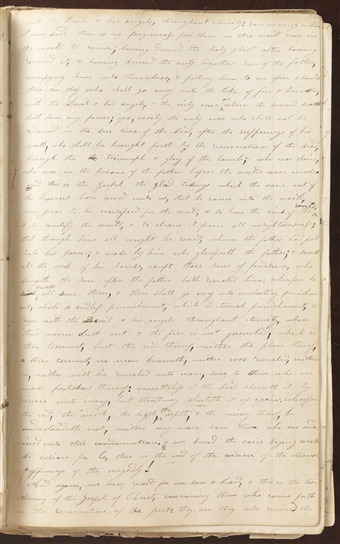 with the Devil & his angels, throughout eternity; concerning whom
I have said there is no forgiveness for them in this world nor in
the world to come; having denied the holy ghost after having
received it, & having denied the only begotten son of the father,
crucifying him unto themselves, & putting him to an open shame;
these are they who shall go away into the lake of fire & brimstone,
with the Devil & his angels, & the only ones on whom the second death
shall have any power; yea, verily the only ones who shall not be
redeemed in the due time of the Lord, after the sufferings of his
wrath, who shall be brought forth by the resurrection of the dead,
through the triumph & glory of the lamb; who was slain,
who was in the bosom of the father before the worlds were made
& this is the gospel, the glad tidings which the voice out of
the heavens bore record unto us, that he came into the world,
to be crucified for the world, & to bear the sins of the world,
& to sanctify the world, & to cleanse it from all unrighteousness;
that through him all might be saved, whom the father had put
into his power, & made by him who glorifieth the father, & saveth
all the work of his hands, except those sons of perdition, who
denyeth the son after the father hath revealed him; wherefore he
saveth all save them, & these shall go away into everlasting punishment,
which is endless punishment, which is eternal punishment, to
reign with the Devil & his angels throughout eternity, where
their worm dieth not & the fire is not quenched, which is
their torment, but the end thereof, neither the place thereof,
& their torment, no man knoweth, neither was revealed, neither
is, neither will be revealed unto man, save to them who are
made partakers thereof: nevertheless I the Lord sheweth it by
vision unto many, but straitway shuteth it up again; wherefore
the end, the width, the hight, the depth, & the misery thereof, he
understandeth not, neither any man save them who are ordained
unto this condemnation, & we heard the voice saying write
the vision for lo, this is the end of the vision of the eternal
sufferings of the ungodly!
And again, we bear record for we saw & heard, & this is the testimony
of the gospel of Christ, concerning them who come forth
in the resurrection of the just; they are they who received the